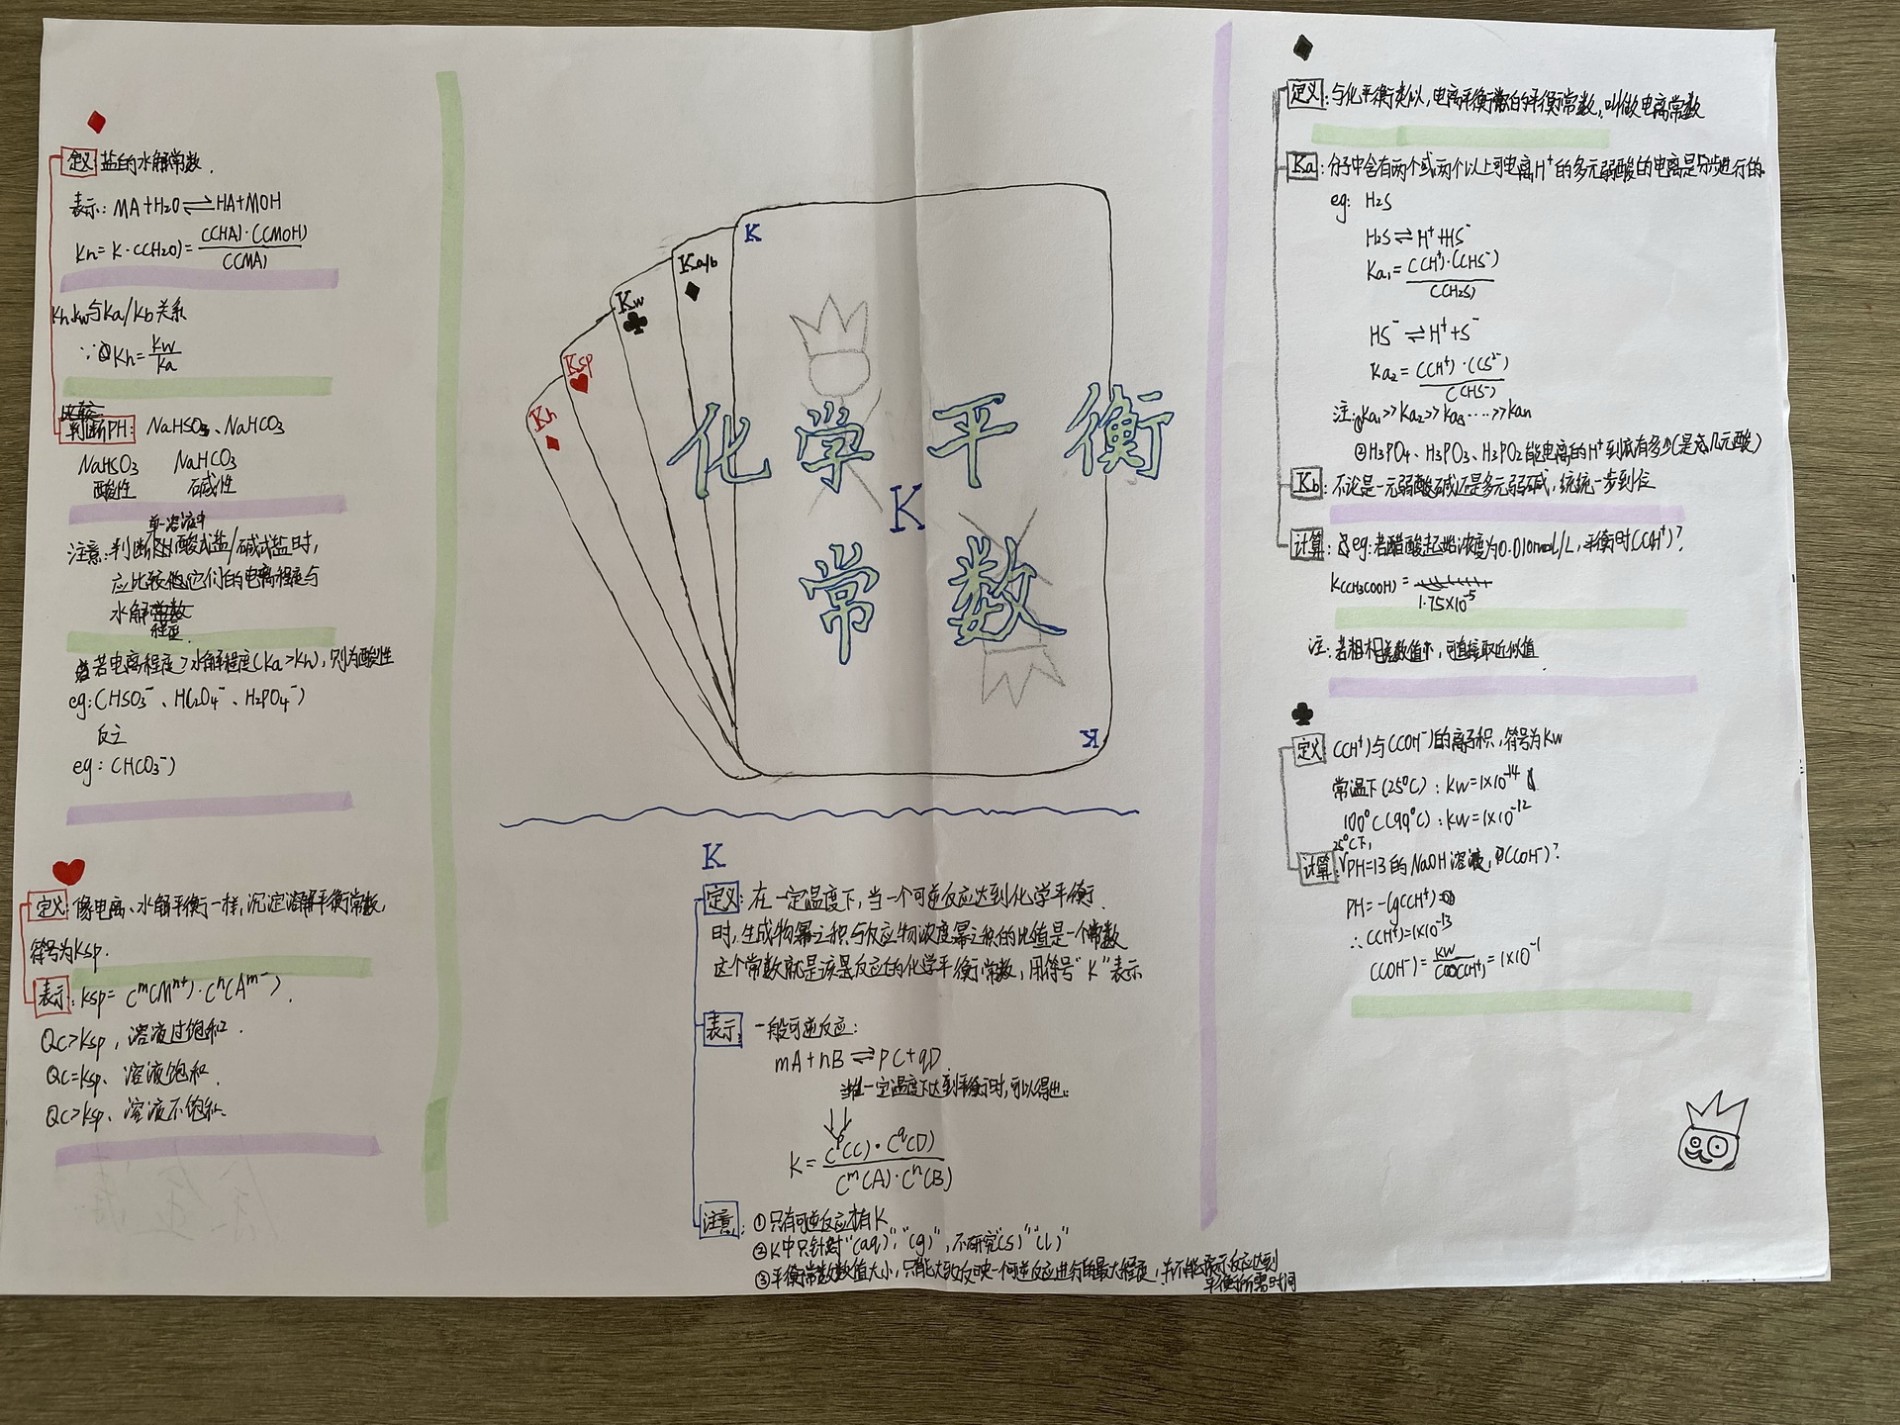 定义:盐的水解常数.
表示:MA+H2O⇌HA+MOH
Kh=K·C(H2O)=C(HA)·C(MOH)/C(MA)
Kh、Kw与Ka/Kb关系
∵Kh=Kw/Ka
判断PH: NaHSO3、NaHCO3
NaHSO3 NaHCO3
酸性 碱性
单一溶液中
注意:判断酸式盐/碱式盐时,
应比较它们的电离程度与
水解程度.
若电离程度>水解程度(Ka>Kh),则为酸性
eg:(HSO3⁻、HC2O4⁻、H2PO4⁻)
反之
eg:(HCO3⁻)
定义:像电离、水解平衡一样,沉淀溶解平衡常数,
符号为Ksp.
表示:Ksp=C^m(M^n+)·C^n(A^m-).
Qc>Ksp,溶液过饱和.
Qc=Ksp、溶液饱和.
Qc>Ksp、溶液不饱和.
K
Ka/b
Kw
Ksp
Kh
化学平衡
K
常数
K
K
定义:在一定温度下,当一个可逆反应达到化学平衡
时,生成物幂之积与反应物浓度幂之积的比值是一个常数
这个常数就是该是反应的化学平衡常数,用符号"K"表示
表示: 一般可逆反应:
mA+nB⇌pC+qD
一定温度下达到平衡时,可以得出.
K=C^p(C)·C^q(D)/C^m(A)·C^n(B)
注意: ①只有可逆反应才有K
②K中只针对"(aq)","(g)",不研究"(s)""(l)"
③平衡常数数值大小,只能大致反映一可逆反应进行的最大程度,并不能预示反应达到
平衡所需时间
定义:与化平衡类似,电离平衡的平衡常数,叫做电离常数
Ka:分子中含有两个或两个以上可电离H⁺的多元弱酸的电离是分步进行的.
eg: H2S
H2S⇌H⁺+HS⁻
Ka1=C(H⁺)·C(HS⁻)/C(H2S)
HS⁻⇌H⁺+S⁻
Ka2=C(H⁺)·C(S²⁻)/C(HS⁻)
注:①Ka1>>Ka2>>Ka3……>>Kan
②H3PO4、H3PO3、H3PO2能电离的H⁺到底有多少(是为几元酸)
Kb:不论是一元弱碱还是多元弱碱,统统一步到位
计算: eg:若醋酸起始浓度为0.010mol/L,平衡时C(H⁺)?
K(CH3COOH)=1.75×10⁻⁵
注:若相差数值小,可直接取近似值
定义:C(H⁺)与C(OH⁻)的离子积,符号为Kw
常温下(25°C):Kw=1×10⁻¹⁴
100°C(99°C):Kw=1×10⁻¹²
25°C下,
计算:PH=13的NaOH溶液,C(OH⁻)?
PH=-lgC(H⁺)
∴C(H⁺)=1×10⁻¹³
C(OH⁻)=Kw/C(H⁺)=1×10⁻¹